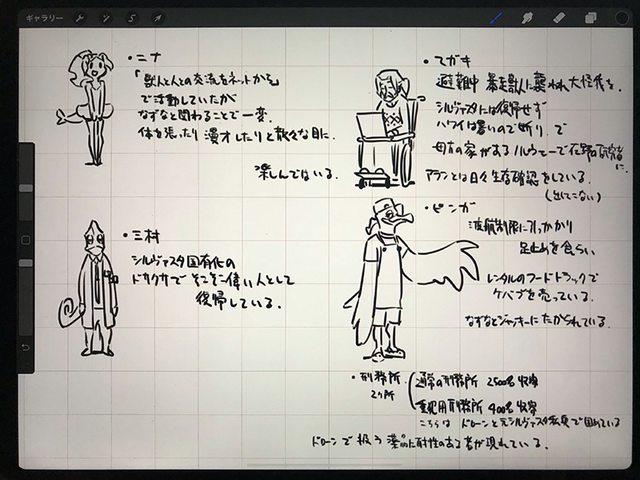 ギャラリー
・ニナ
「獣人と人との交流をネットから」
で活動していたが
なずなと関わることで一変。
体を張ったり漫才したりと散々な目に。
楽しんではいる。
・三村
シルヴァスタ国有化の
ドサクサでそこそこ偉い人として
復帰している。
・マガキ
避難中 暴走獣人に襲われ大怪我を。
シルヴァスタには復帰せず
ハワイは暑いので断り。で
母方の家があるノルウェーで在野の研究者に。
アランとは日々生存確認をしている。
(出てこない)
・ピンガ
渡航制限にひっかかり
足止めを食らい
レンタルのフードトラックで
ケバブを売っている。
なずなとジャッキーにたかられている。
・刑務所
2ヶ所
通常の刑務所 2500名収容
重犯用刑務所 400名収容
こちらは ドローンと元シルヴァスタ私兵で固めている
ドローンで扱う薬品に耐性のある者が現れている。